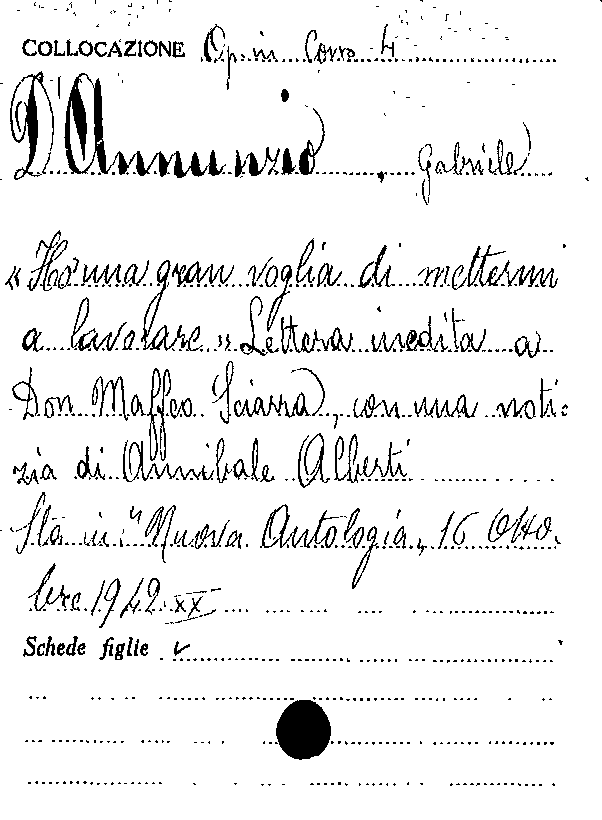 COLLOCAZIONE Op. in Corso 4
D'Annunzio, Gabriele
« Ho una gran voglia di mettermi
a lavorare » Lettera inedita a
Don Maffeo Sciarra, con una noti:
zia di Annibale Alberti
Sta in: "Nuova Antologia, 16 Otto.
bre 1942.XX
Schede figlie